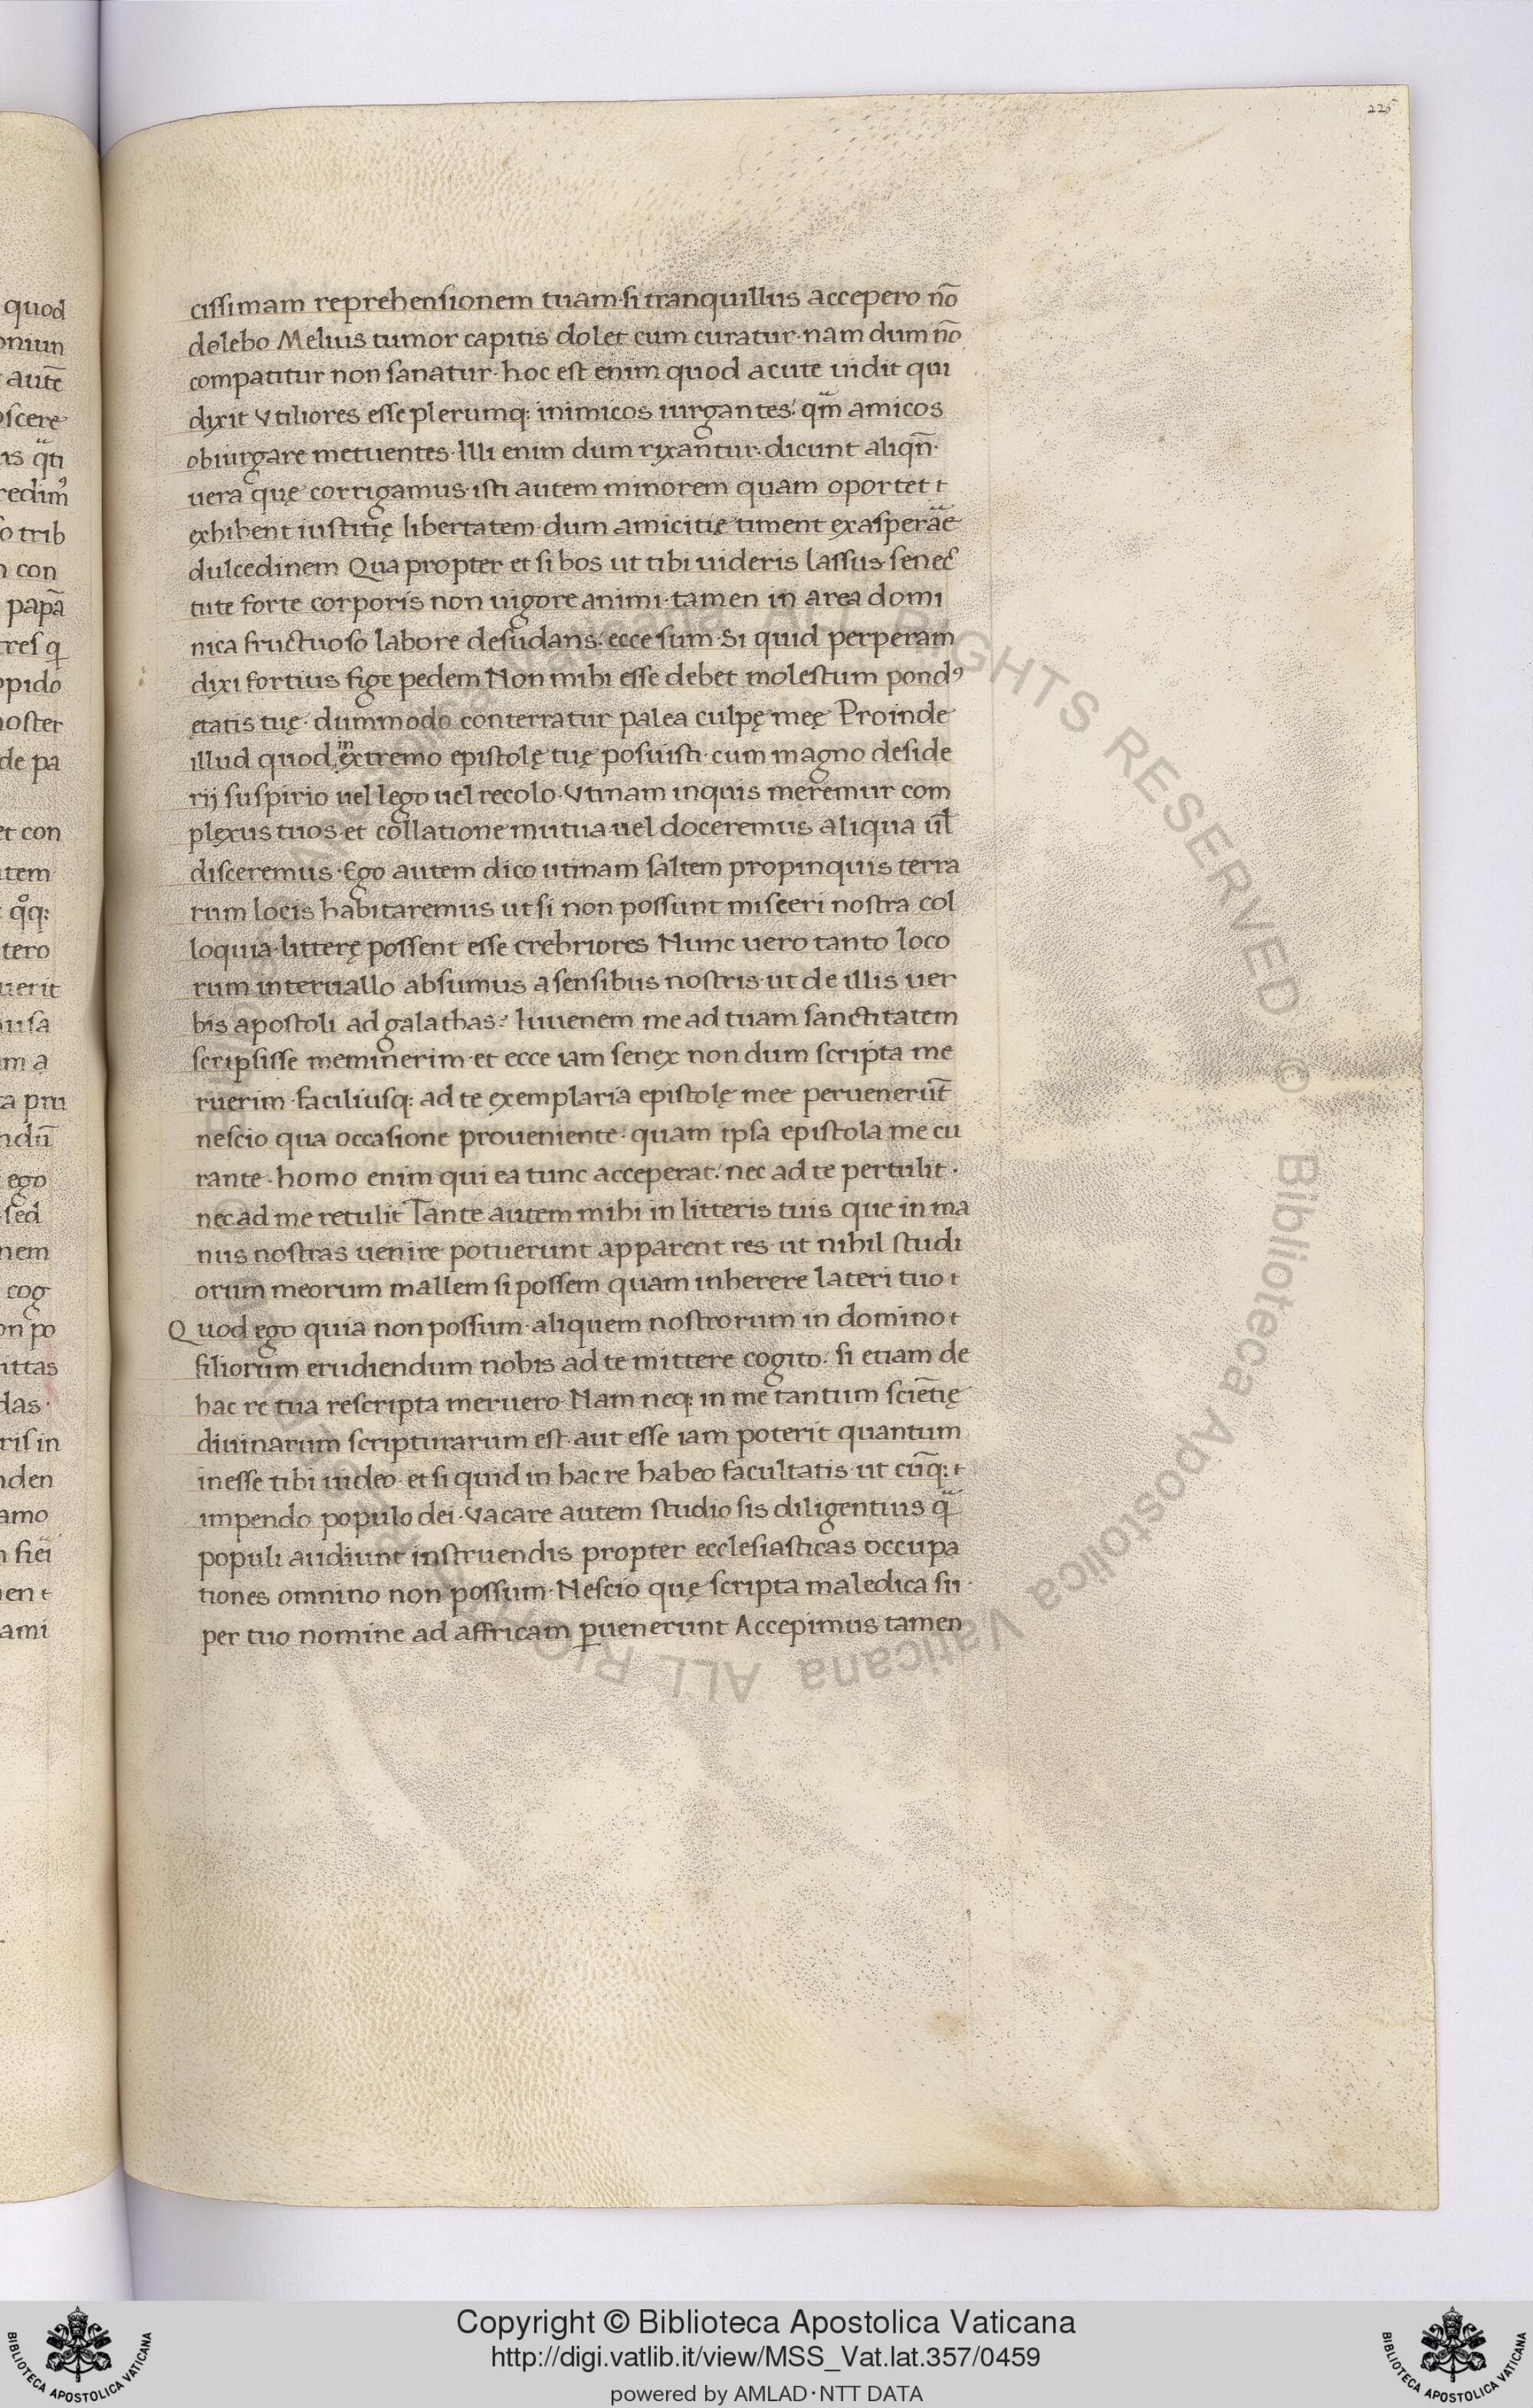 225
cissimam reprehensionem tuam·si tranquillus accepero nō
dolebo Melius tumor capitis dolet cum curatur·nam dum nō
compatitur non sanatur·hoc est enim quod acute uidit qui
dixit Vtiliores esse plerumq: inimicos iurgantes: qm̄ amicos
obiurgare metuentes·Illi enim dum rixantur·dicunt aliqn̄·
uera quę corrigamus·isti autem minorem quam oportet t
exhibent iustitię libertatem·dum amicitię timent exasperāe
dulcedinem Qua propter et si bos ut tibi uideris lassus senec̄
tute forte corporis non uigore animi·tamen in area domi
nica fructuoso labore desudans: ecce sum·Si quid perperam
dixi fortius fige pedem Non mihi esse debet molestum pondꝰ
ętatis tuę·dummodo conterratur palea culpę męę Proinde
illud quod in extremo epistolę tuę posuisti·cum magno deside
rij suspirio uel lego uel recolo·Vtinam inquis meremur com
plexus tuos·et collatione mutua uel doceremus aliqua ul̄
disceremus·Ego autem dico utinam saltem propinquis terra
rum locis habitaremus ut si non possunt misceri nostra col
loquia·litterę possent esse crebriores Nunc uero tanto loco
rum interuallo absumus a sensibus nostris·ut de illis uer
bis apostoli ad galathas: Iuuenem me ad tuam sanctitatem
scripsisse meminerim·et ecce iam senex non dum scripta me
ruerim·faciliusq: ad te exemplaria epistolę mee peruenerūt
nescio qua occasione proueniente·quam ipsa epistola me cu
rante·homo enim qui ea tunc acceperat: nec ad te pertulit·
nec ad me retulit Tante autem mihi in litteris tuis que in ma
nus nostras uenire potuerunt apparent res·ut nihil studi
orum meorum mallem si possem quam inherere lateri tuo t
Quod ego quia non possum·aliquem nostrorum in domino t
filiorum erudiendum nobis ad te mittere cogito·si etiam de
hac re tua rescripta meruero·Nam neq: in me tantum sciētię
diuinarum scripturarum est·aut esse iam poterit quantum
inesse tibi uideo·et si quid in hac re habeo facultatis·ut cūq: t
impendo populo dei·Vacare autem studiosis diligentius q̄
populi audiunt instruendis propter ecclesiasticas occupa
tiones omnino non possum·Nescio quę scripta maledica su
per tuo nomine ad affricam ꝑuenerunt Accepimus tamen
quod
autē
scere
redim
o trib
con
papā
pido
noster
de pa
et con
tem
tero
uerit
ego
sed
nem
cog
on po
das·
ris in
den
amo
ami
Biblioteca Apostolica Vaticana ALL RIGHTS RESERVED ©
Copyright © Biblioteca Apostolica Vaticana
http://digi.vatlib.it/view/MSS_Vat.lat.357/0459
powered by AMLAD·NTT DATA
BIBLIOTECA APOSTOLICA VATICANA
BIBLIOTECA APOSTOLICA VATICANA